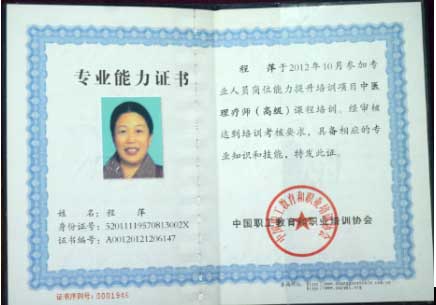 专业能力证书
姓 名：程 萍
身份证号：52011119570813002X
证书编号：A00120121206147
证书序列号：0001946
程 萍于2012年10月参加专
业人员岗位能力提升培训项目中医
理疗师（高级）课程培训。经审核
达到培训考核要求，具备相应的专
业知识和技能，特发此证。
中国职工教育和职业培训协会
中国职工教育和职业培训协会